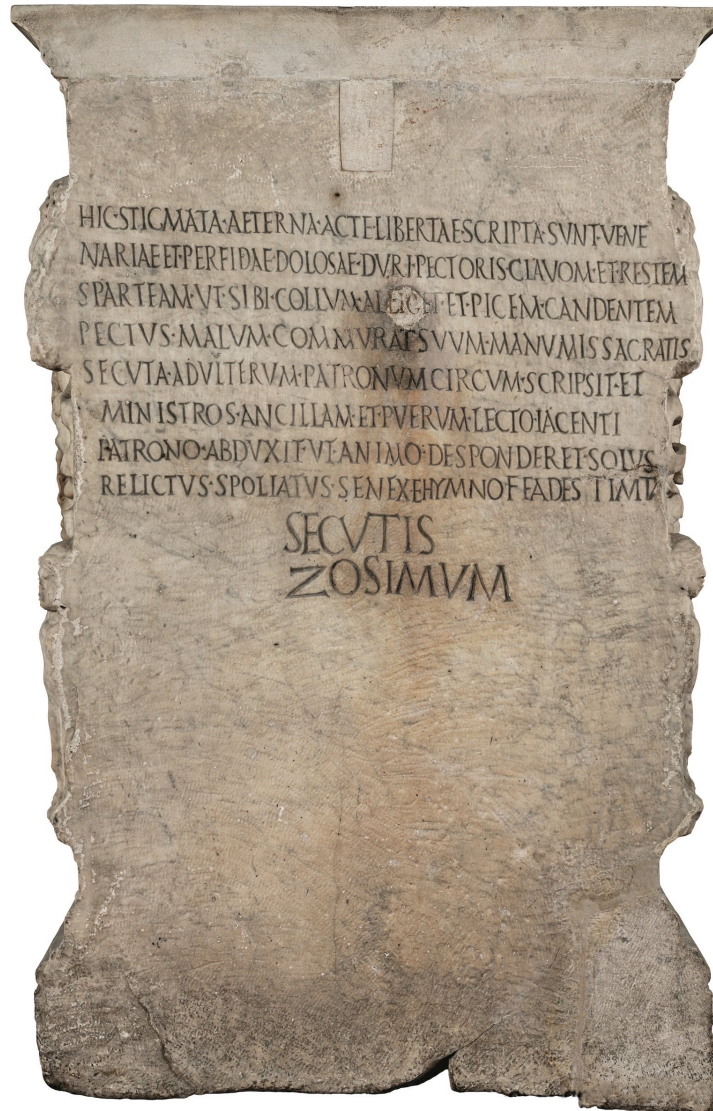 HIC·STIGMATA·AETERNA·ACTE·LIBERTAE·SCRIPTA·SVNT·VENE
NARIAE·ET·PERFIDAE·DOLOSAE·DVRI·PECTORIS·CLAVOM·ET·RESTEM
SPARTEAM·VT·SIBI·COLLVM·ALLIGET·ET·PICEM·CANDENTEM
PECTVS·MALVM·COMMVRAT·SVVM·MANVMISSA·GRATIS
SECVTA·ADVLTERVM·PATRONVM·CIRCVM·SCRIPSIT·ET
MINISTROS·ANCILLAM·ET·PVERVM·LECTO·IACENTI
PATRONO·ABDVXIT·VT·ANIMO·DESPONDERET·SOLVS
RELICTVS·SPOLIATVS·SENEX·E HYMNO
SECVTIS
ZOSIMVM